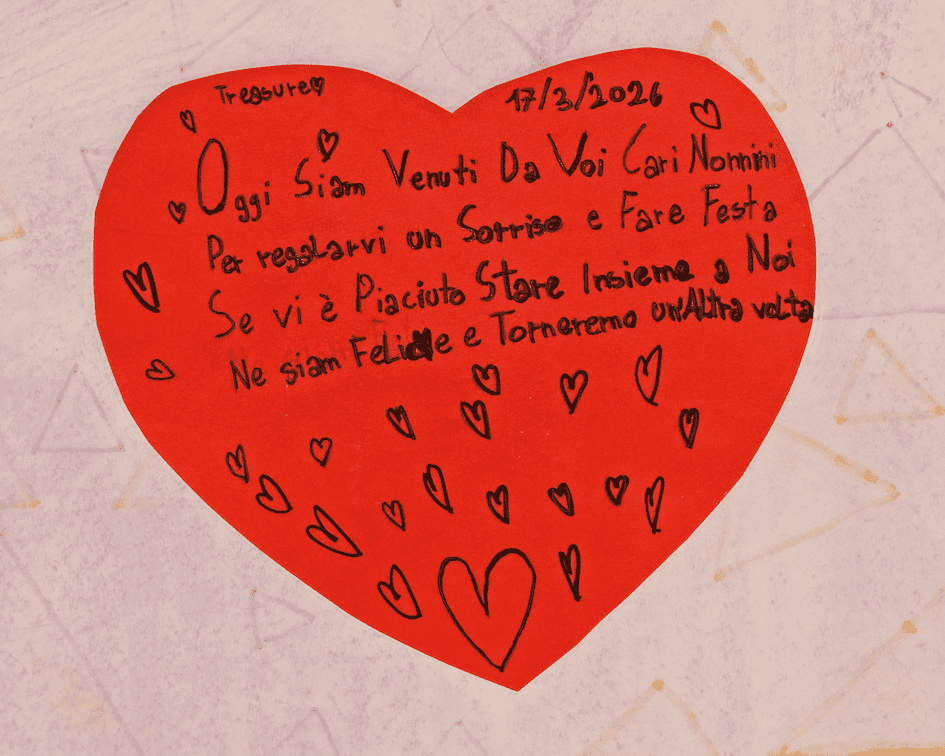 Treasure 17/3/2026
Oggi Siam Venuti Da Voi Cari Nonnini
Per regalarvi un Sorriso e Fare Festa
Se vi è Piaciuto Stare Insieme a Noi
Ne siam Felice e Torneremo un'Altra volta